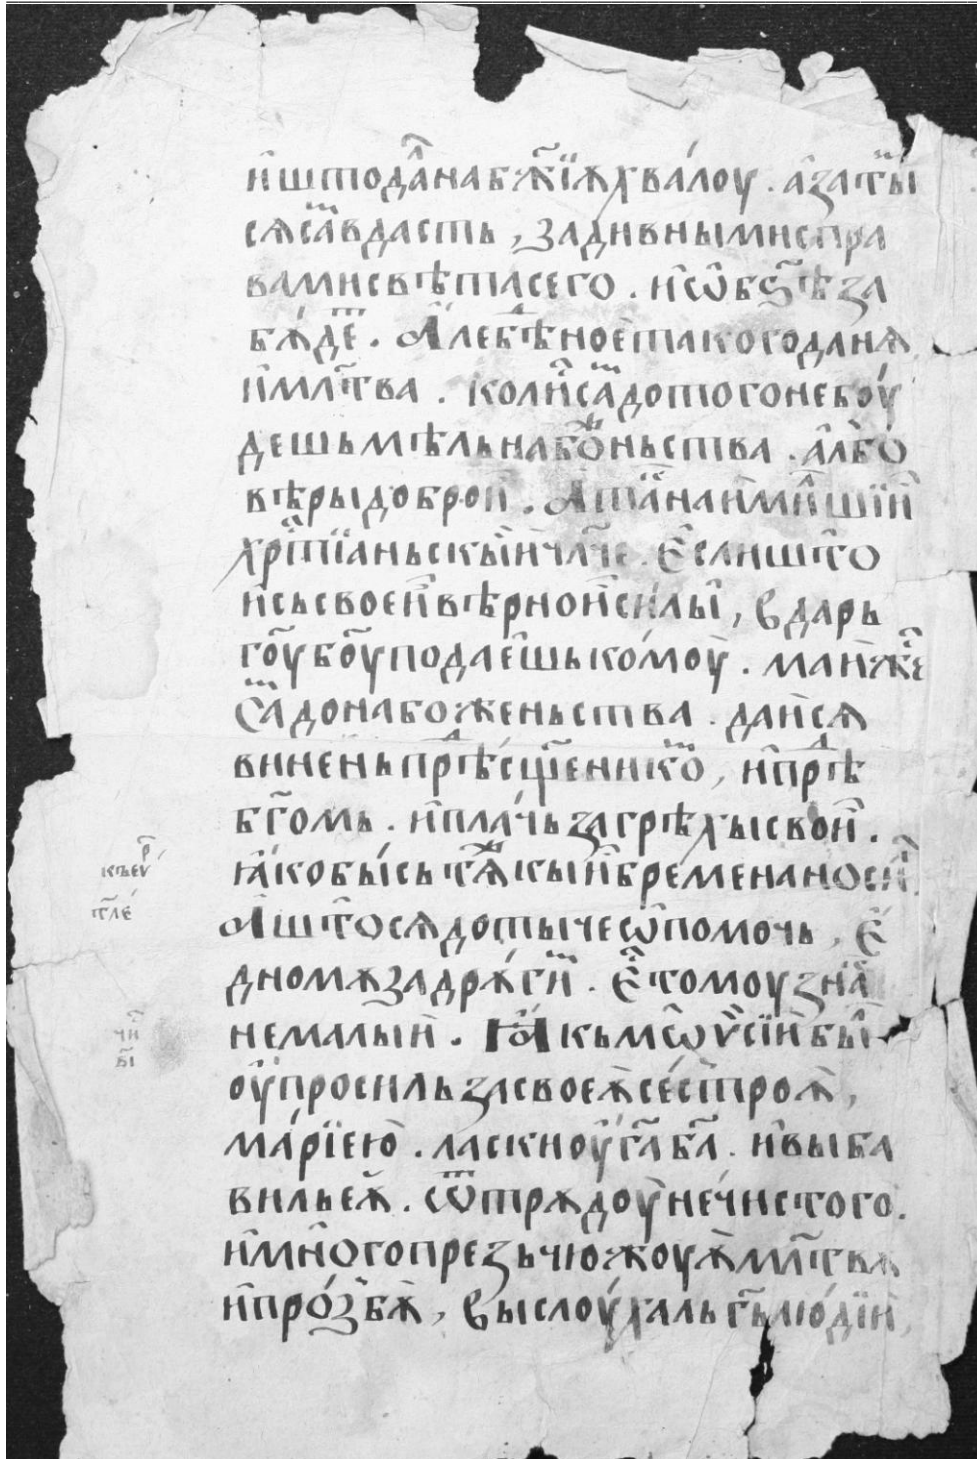 и҆ штода҆на бж҃їѧ хва́лоу . а҆ за ты҃
сѧ са҃ вдасть , за дивными спра
вами свѣта сего . и҆ ѡ҆бꙁ҃ѣ за
бѫ́де҃ . А҆ле бѣ҃ное́ такого данѧ
и҆ мл҃тва . коли҆ са҃ до того не боу́
дешь мѣль набо҃ньства . а҆лбо
вѣры доброи҆ . А҆ та҃ наи҆мн҃шїи҆
хрⷭ҇тїаньскы҆и чл҃че . Е҆сли што
и҆сь своеи҆ вѣрнои҆ силы҆ , в дарь
го҃у бо҃у подае҆шь комоу̀ . маи҆ же҃
са҃ до набоженьства . даи сѧ
винень прѣ҃ сщ҃еннико҃ , и҆ прѣ҃
бг҃омь . и҆ пла́чь за грѣхы свои҆ .
ꙗ҆кобы́сь тѧ҃кыи҆ бремена носи҃
А҆ што сѧ дотыче ѡ҆ помочь , є҆
дномѫ за дрѫ́ги҃ . Е҆ томоу зна҃
немалыи҆ . Ꙗ҆кь мѡѷсїи҆ бы҃
оу҆просиль за своеѫ̀ се́строѫ̀ ,
ма́рїею̀ . ласкноу̀ га҃ ба҃ . и҆ выба
виль еѧ̀ . ѿ трѧдоу̀ нечистого .
и҆ много презь чюжоуѫ̀ мл҃твѫ
и҆ про́збѫ̀ , выслоу́халь гь҃ лю́дїи҆ ,
кпѣеѵ҃
тле́
чи҃
бы҃